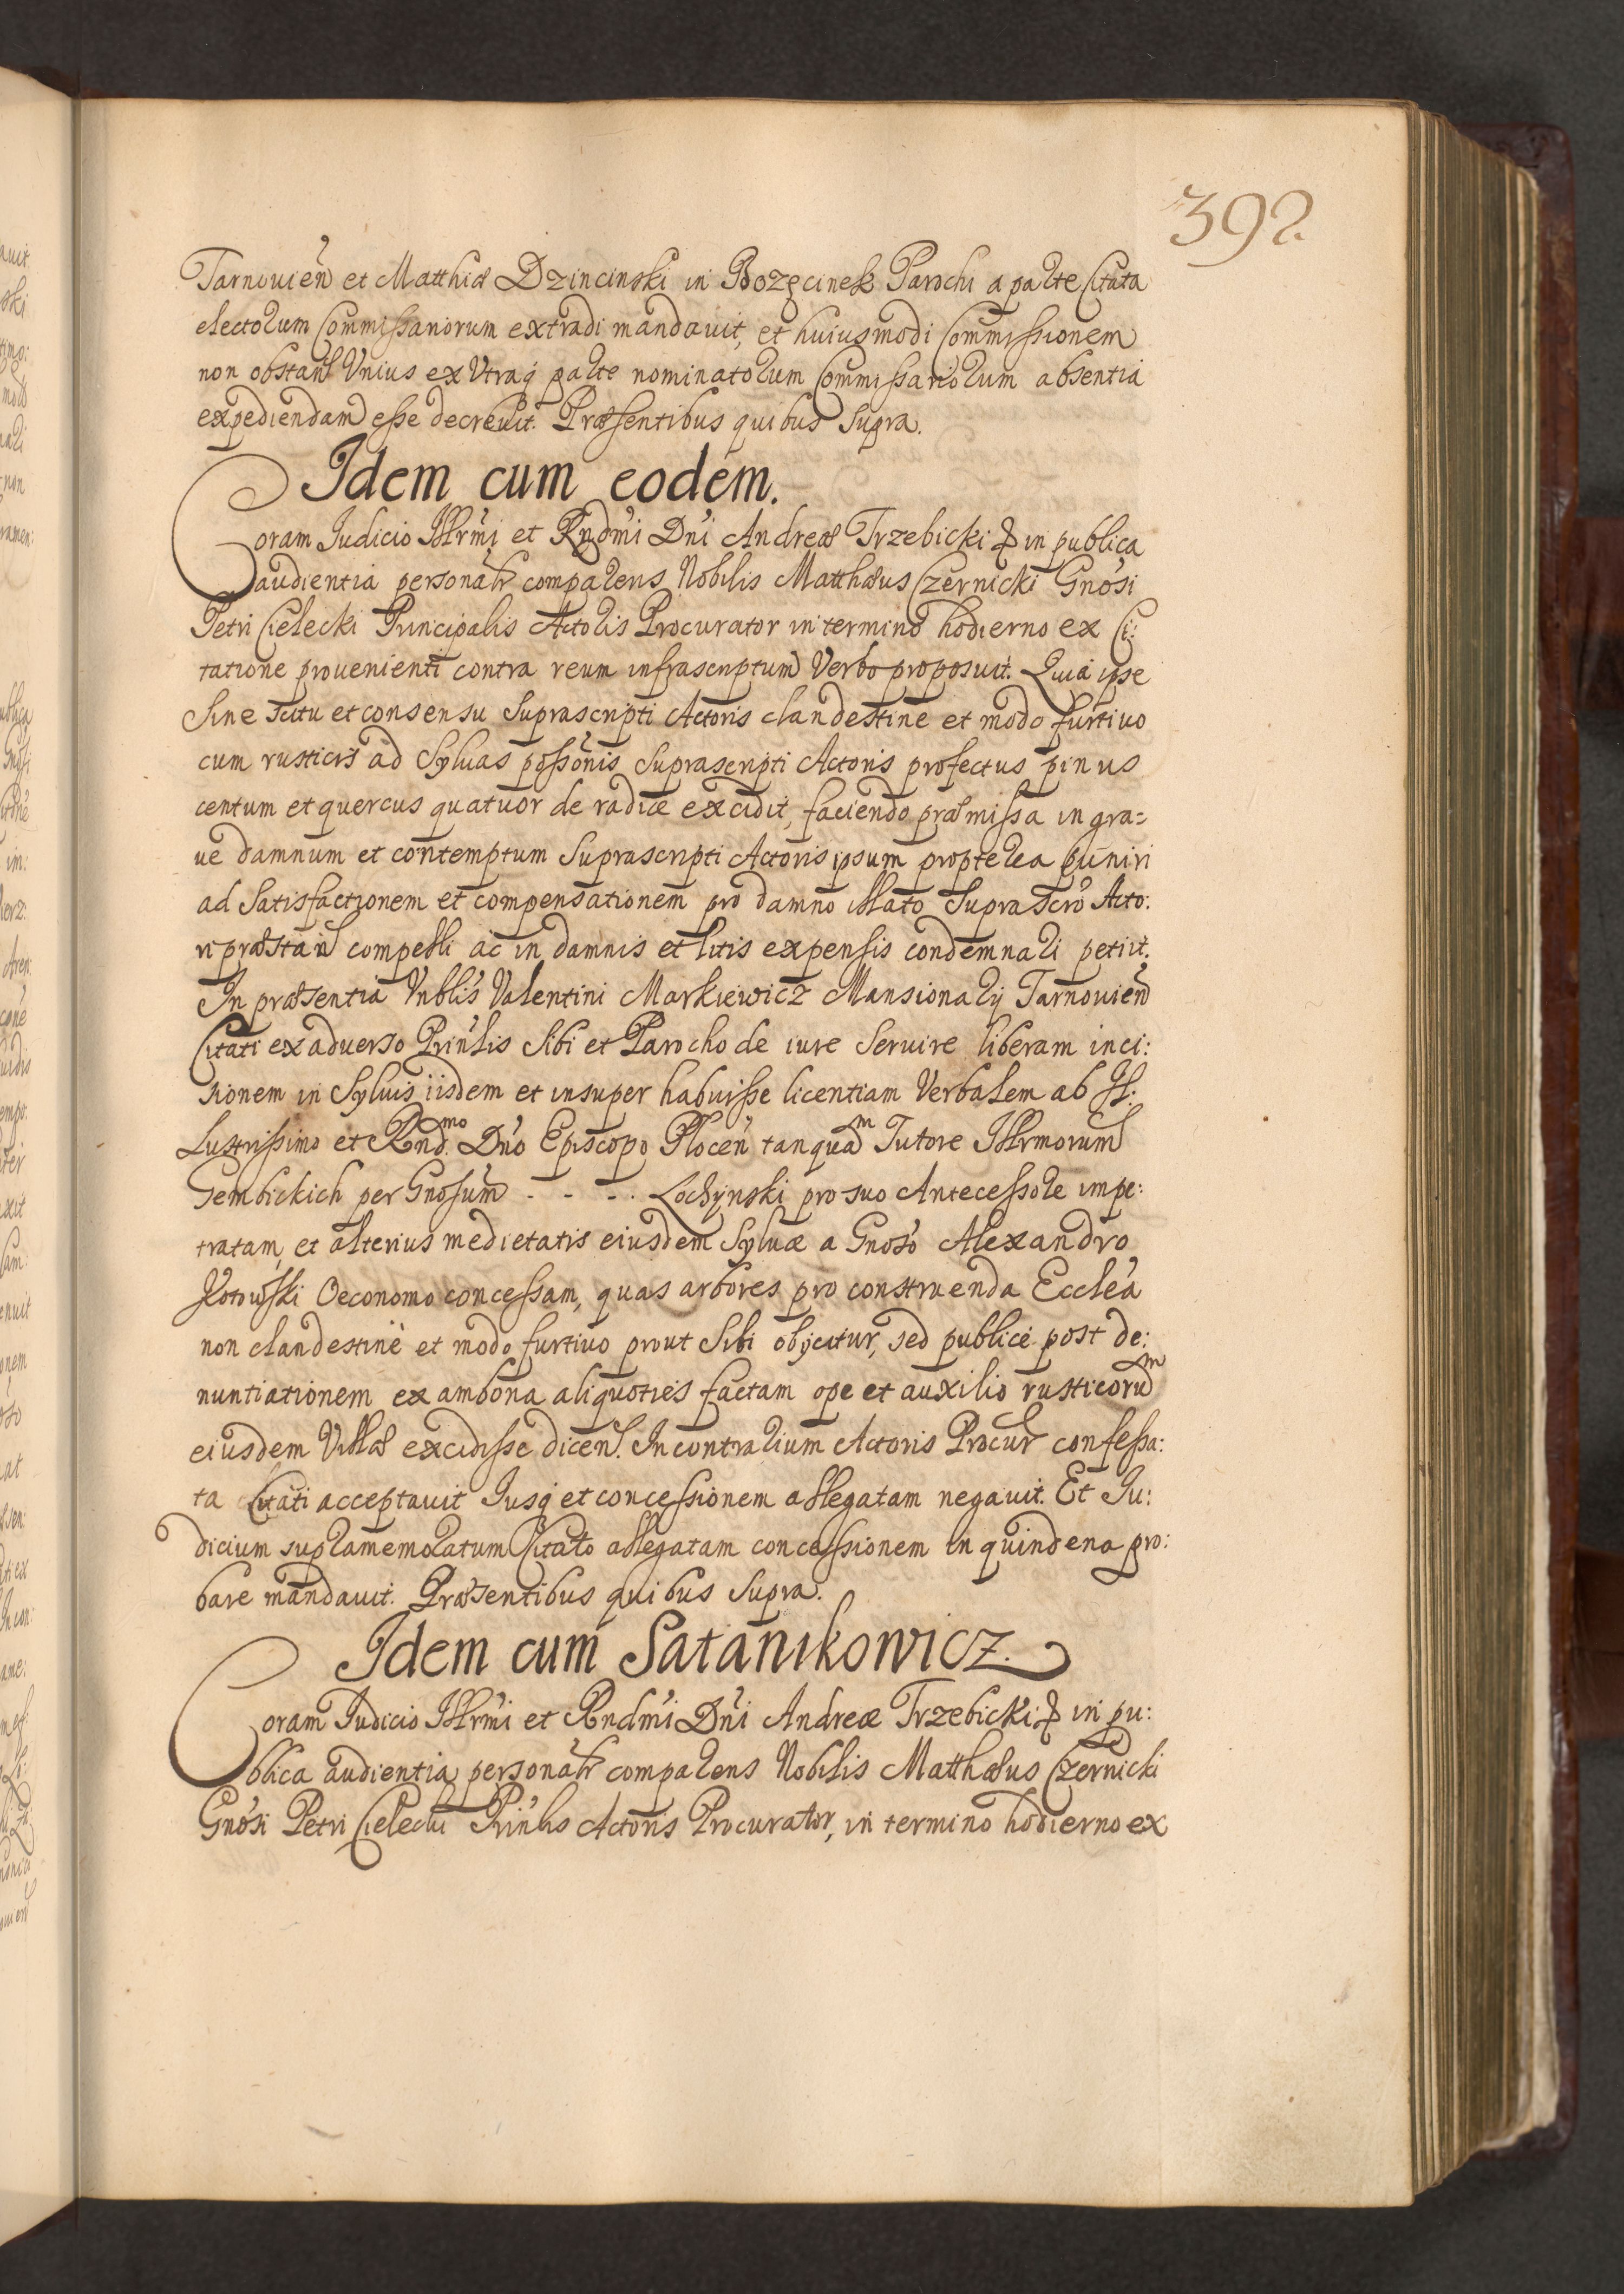 392
Tarnouien̄ et Matthiæ Dzincinski in Bozęcinek Parochi a parte Citata
electorum Commissariorum extradi mandauit, et huiusmodi Commissionem
non obstan̄ Vnius ex Vtraq́ parte nominatorum Commissariorum absentia
expediendam esse decreuit. Præsentibus quibus supra.
Idem cum eodem.
Coram Iudicio Illrm̄i et Rndm̄i Dn̄i Andreæ Trzebicki in publica
audientia personalr̄ comparens Nobilis Matthæus Czernicki Gnōsi
Petri Cielecki Principalis Actoris Procurator in termino hodierno ex Ci:
tatione prouenienti contra reum infrascriptum Verbo proposuit. Quia ipse
Sine scitu et consensu Suprascripti Actoris clandestine et modo furtiuo
cum rusticis ad Syluas possōnis Suprascripti Actoris profectus pinus
centum et quercus quatuor de radice excidit, faciendo præmissa in gra=
ue damnum et contemptum Suprascripti Actoris ipsum propterea puniri
ad Satisfactionem et compensationem pro damno illato Suprascrō Acto:
ri præstan̄ compelli ac in damnis et litis expensis condemnari petiit.
In præsentia Vnblīs Valentini Markiewicz Mansionarij Tarnouien̄
Citati ex aduerso Prin̄lis Sibi et Parocho de iure Seruire liberam inci:
sionem in Syluis iisdem et insuper habuisse licentiam Verbalem ab Il:
Lustrissimo et Rnd.mo Dn̄o Episcopo Plocen̄ tanquam Tutore Illrmorum
Gembickich per Gnosum - - - . Lochynski pro suo Antecessore impe:
tratam, et alterius medietatis eiusdem Syluæ a Gnosō Alexandro
Kotowski Oeconomo concessam, quas arbores pro construenda Ecclēa
non clandestinè et modo furtiuo prout Sibi obijcitur, sed publicè post de:
nuntiationem ex ambona aliquoties factam ope et auxilio rusticorum
eiusdem Villæ excidisse dicen̄. In contrarium Actoris Procur̄ confessa:
ta Citati acceptauit Iusq́ et concessionem allegatam negauit. Et Iu:
dicium supramemoratum Citato allegatam concessionem in quindena pro:
bare mandauit. Præsentibus quibus supra.
Idem cum Satanikowicz.
Coram Iudicio Illrm̄i et Rndm̄i Dn̄i Andreæ Trzebicki in pu:
blica audientia personalr̄ comparens Nobilis Matthæus Czernicki
Gnōsi Petri Cielecki Prin̄lis Actoris Procurator, in termino hodierno ex